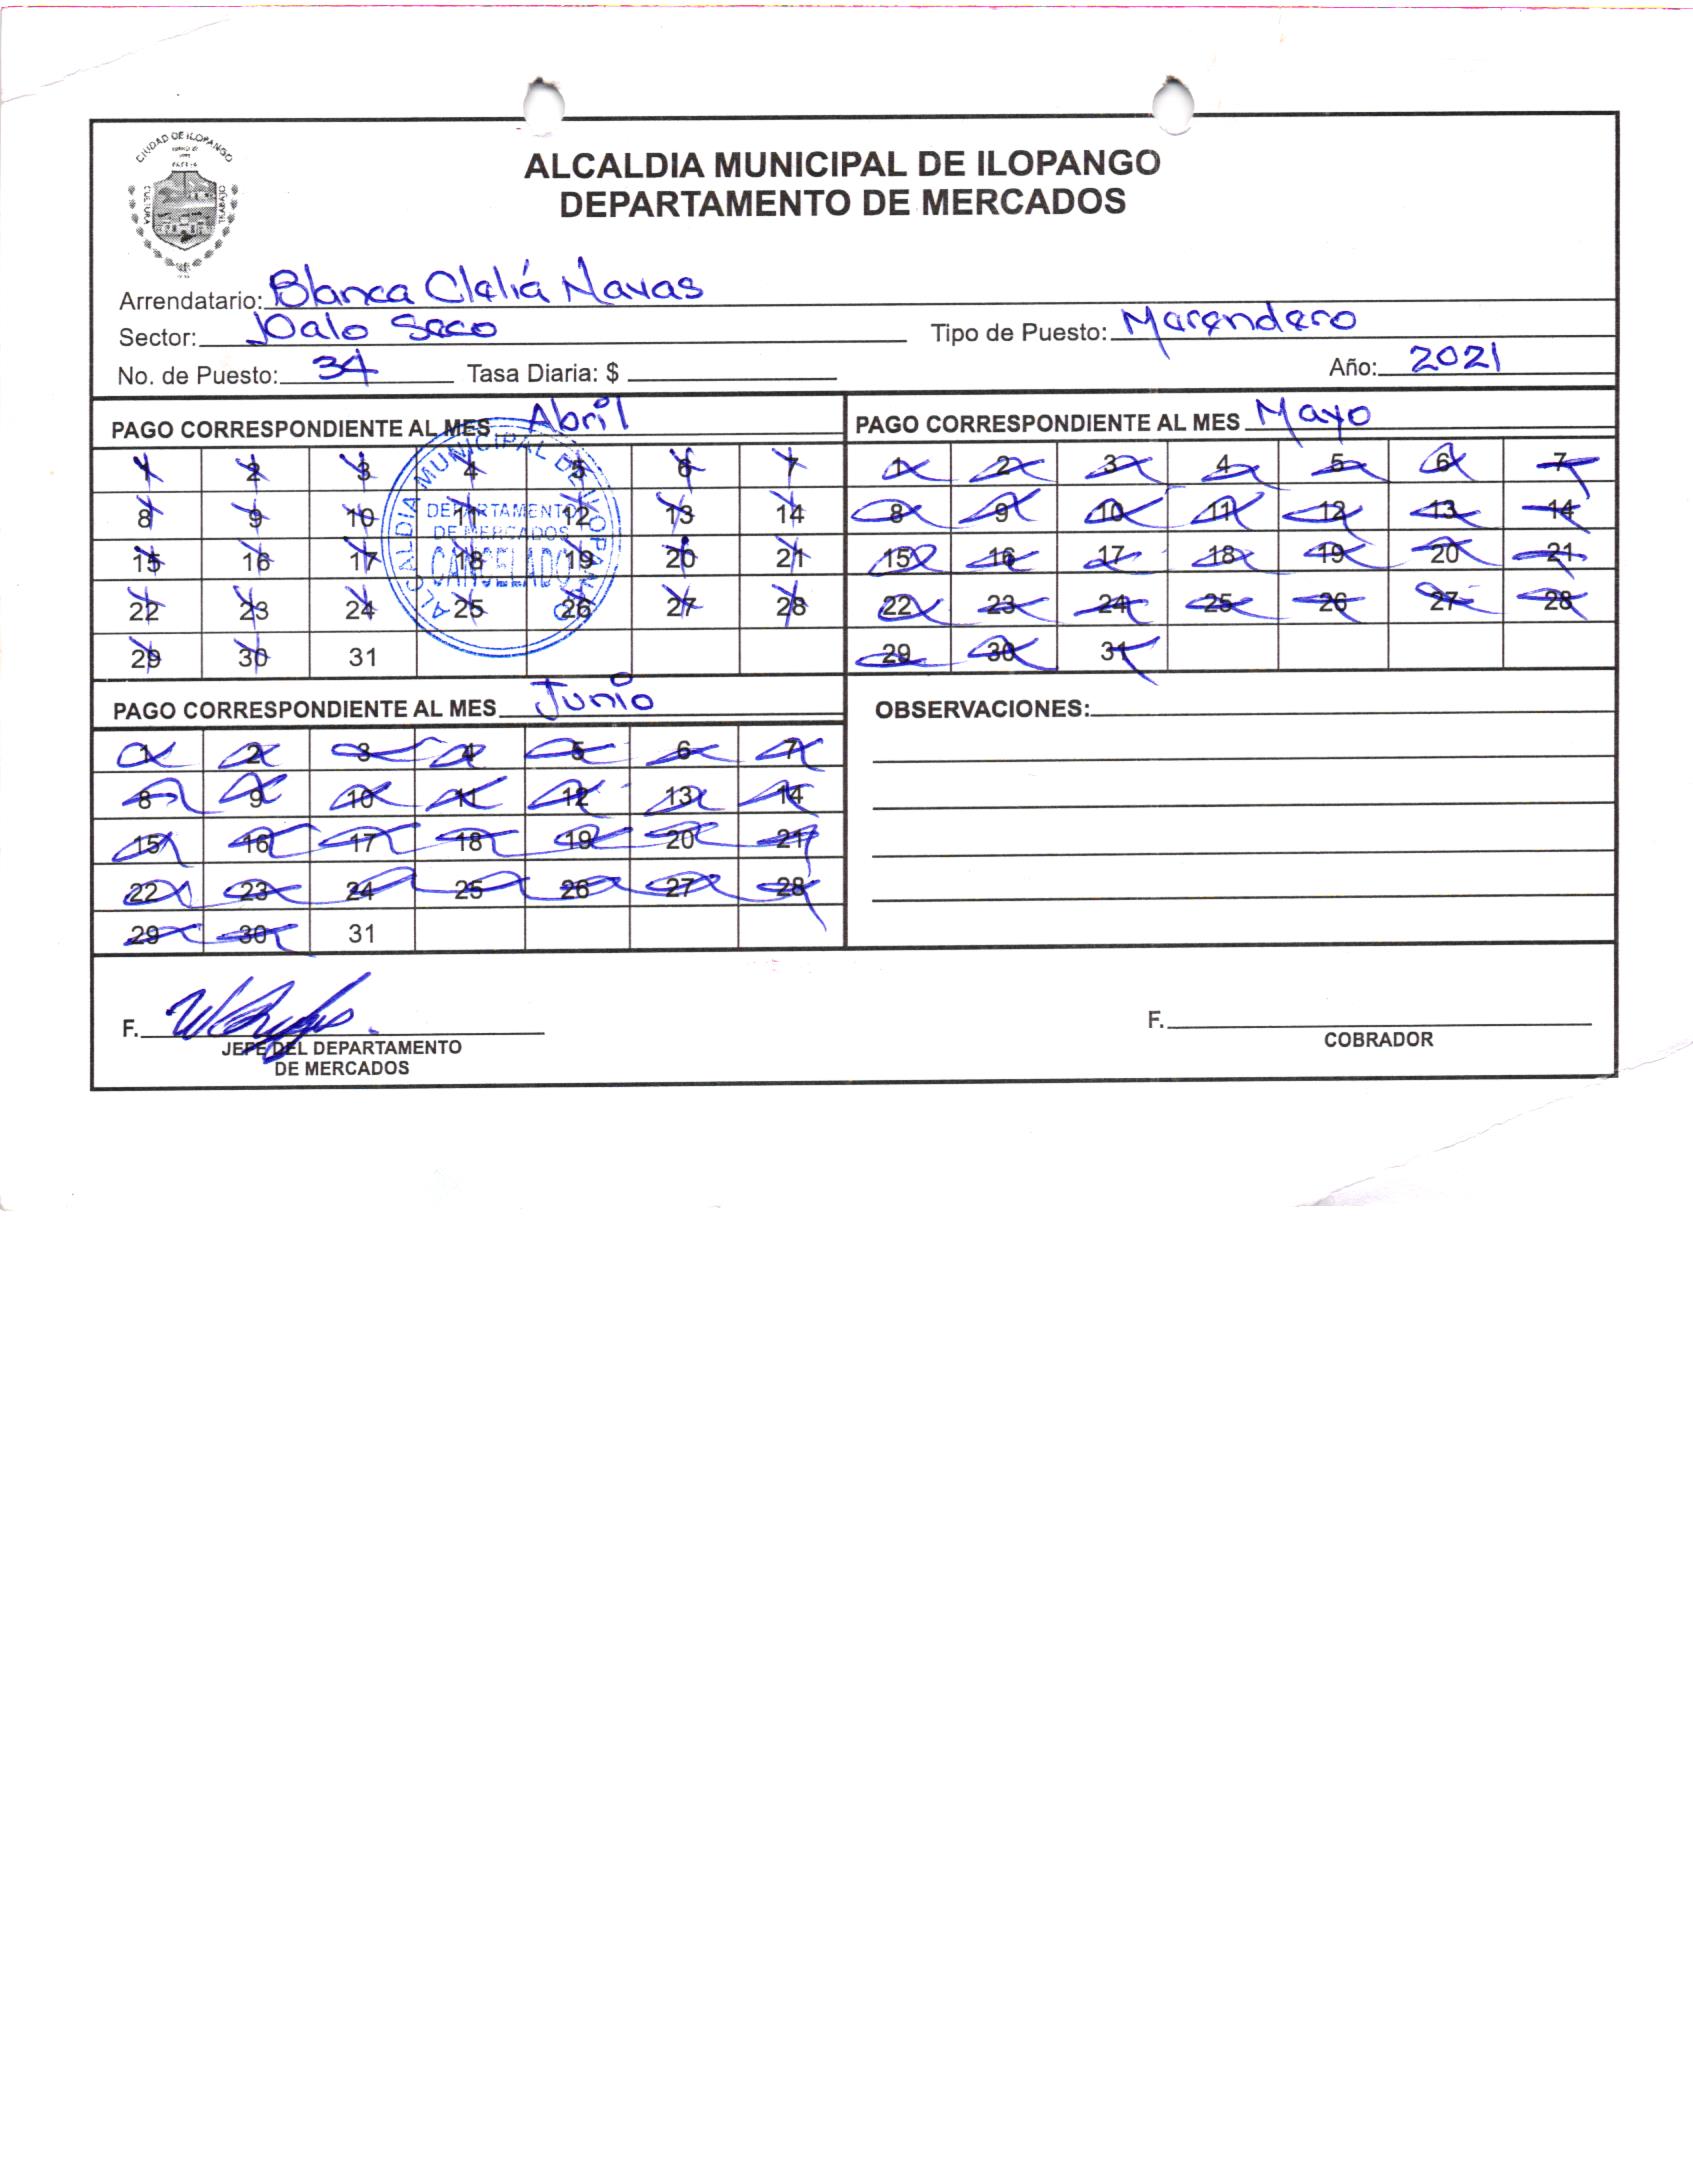 CIUDAD DE ILOPANGO
CULTURA
TRABAJO
ALCALDIA MUNICIPAL DE ILOPANGO
DEPARTAMENTO DE MERCADOS
Arrendatario: Blanca Clelia Navas
Sector: Palo Seco Tipo de Puesto: Merendero
No. de Puesto: 34 Tasa Diaria: $ Año: 2021
PAGO CORRESPONDIENTE AL MES Abril
1 2 3 4 5 6 7
8 9 10 11 12 13 14
15 16 17 18 19 20 21
22 23 24 25 26 27 28
29 30 31
ALCALDIA MUNICIPAL DE ILOPANGO
DEPARTAMENTO
DE MERCADOS
CANCELADO
PAGO CORRESPONDIENTE AL MES Mayo
1 2 3 4 5 6 7
8 9 10 11 12 13 14
15 16 17 18 19 20 21
22 23 24 25 26 27 28
29 30 31
PAGO CORRESPONDIENTE AL MES Junio
1 2 3 4 5 6 7
8 9 10 11 12 13 14
15 16 17 18 19 20 21
22 23 24 25 26 27 28
29 30 31
OBSERVACIONES:
F.
JEFE DEL DEPARTAMENTO
DE MERCADOS
F.
COBRADOR